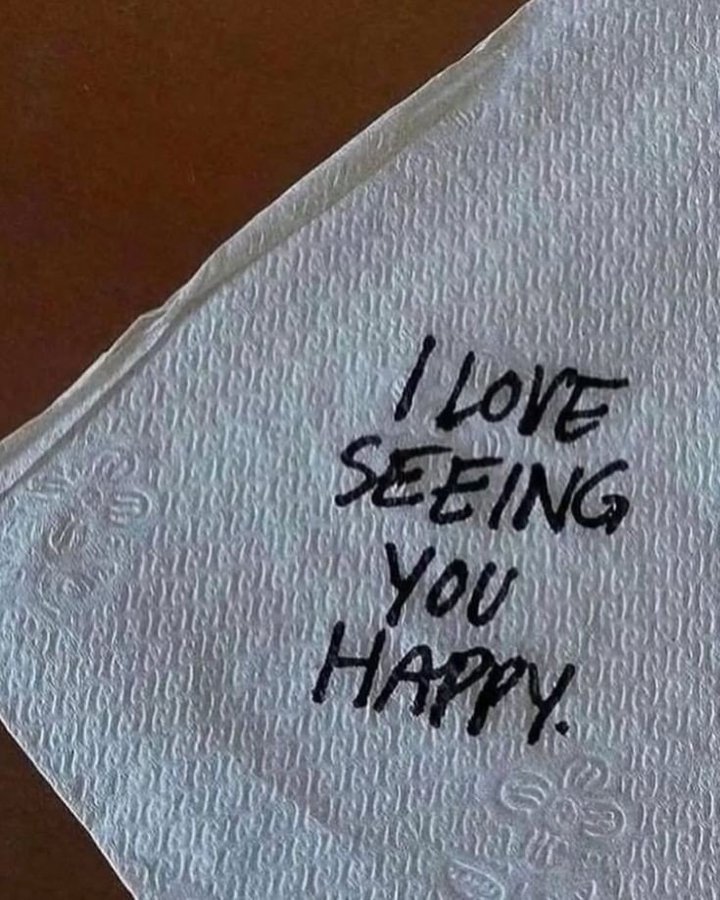 I LOVE
SEEING
YOU
HAPPY.